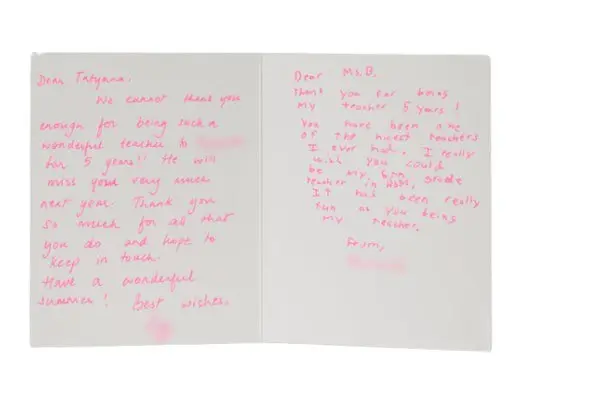 Dear Tatyana,
We cannot thank you
enough for being such a
wonderful teacher to
for 5 years!! He will
miss you very much
next year. Thank you
so much for all that
you do and hope to
keep in touch.
Have a wonderful
summer! Best wishes,
Dear Ms. B,
thank you for being
my teacher 5 years!
You have been one
of the nicest teachers
I ever had. I really
wish you could
be my 6th grade
teacher in
It has been really
fun as you being
my teacher.
From,